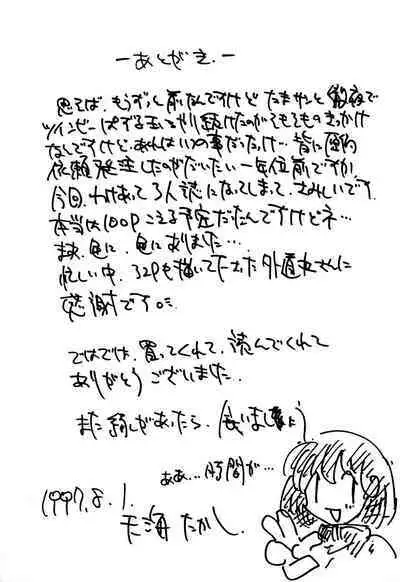 －あとがき．－
思えば．もうずっと前なんですけど たまサンと徹夜で
ツインビーぱずる玉をやり続けたのがそもそものきっかけ
なんですけど．あれはいつの事だったっけ…
依頼発生したのがだいたい一年位前ですか
今回．わけあって3人誌になってしまって、さみしいです。
本当は100Pこえる予定だったんですけどネ…
まあ、色々、色々ありました…
忙しい中、32Pも描いて下さった外道丸さんに
感謝です。
ではでは．買ってくれて、読んでくれて
ありがとう ございました．
また縁があったら．(会いましょう)
ああ…時間が…
1997.8.1.
天海 たかし．